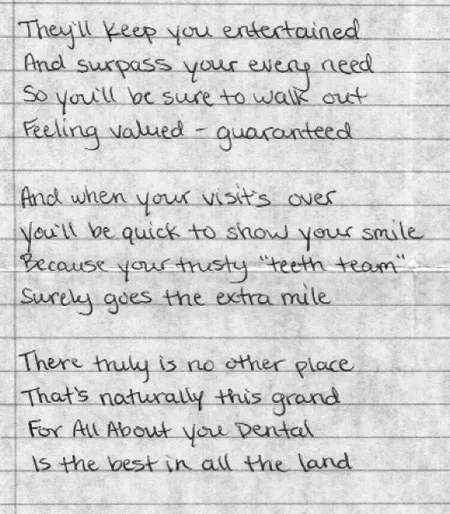 They'll keep you entertained
And surpass your every need
So you'll be sure to walk out
Feeling valued - guaranteed
And when your visit's over
You'll be quick to show your smile
Because your trusty "teeth team"
Surely goes the extra mile
There truly is no other place
That's naturally this grand
For All About You Dental
Is the best in all the land